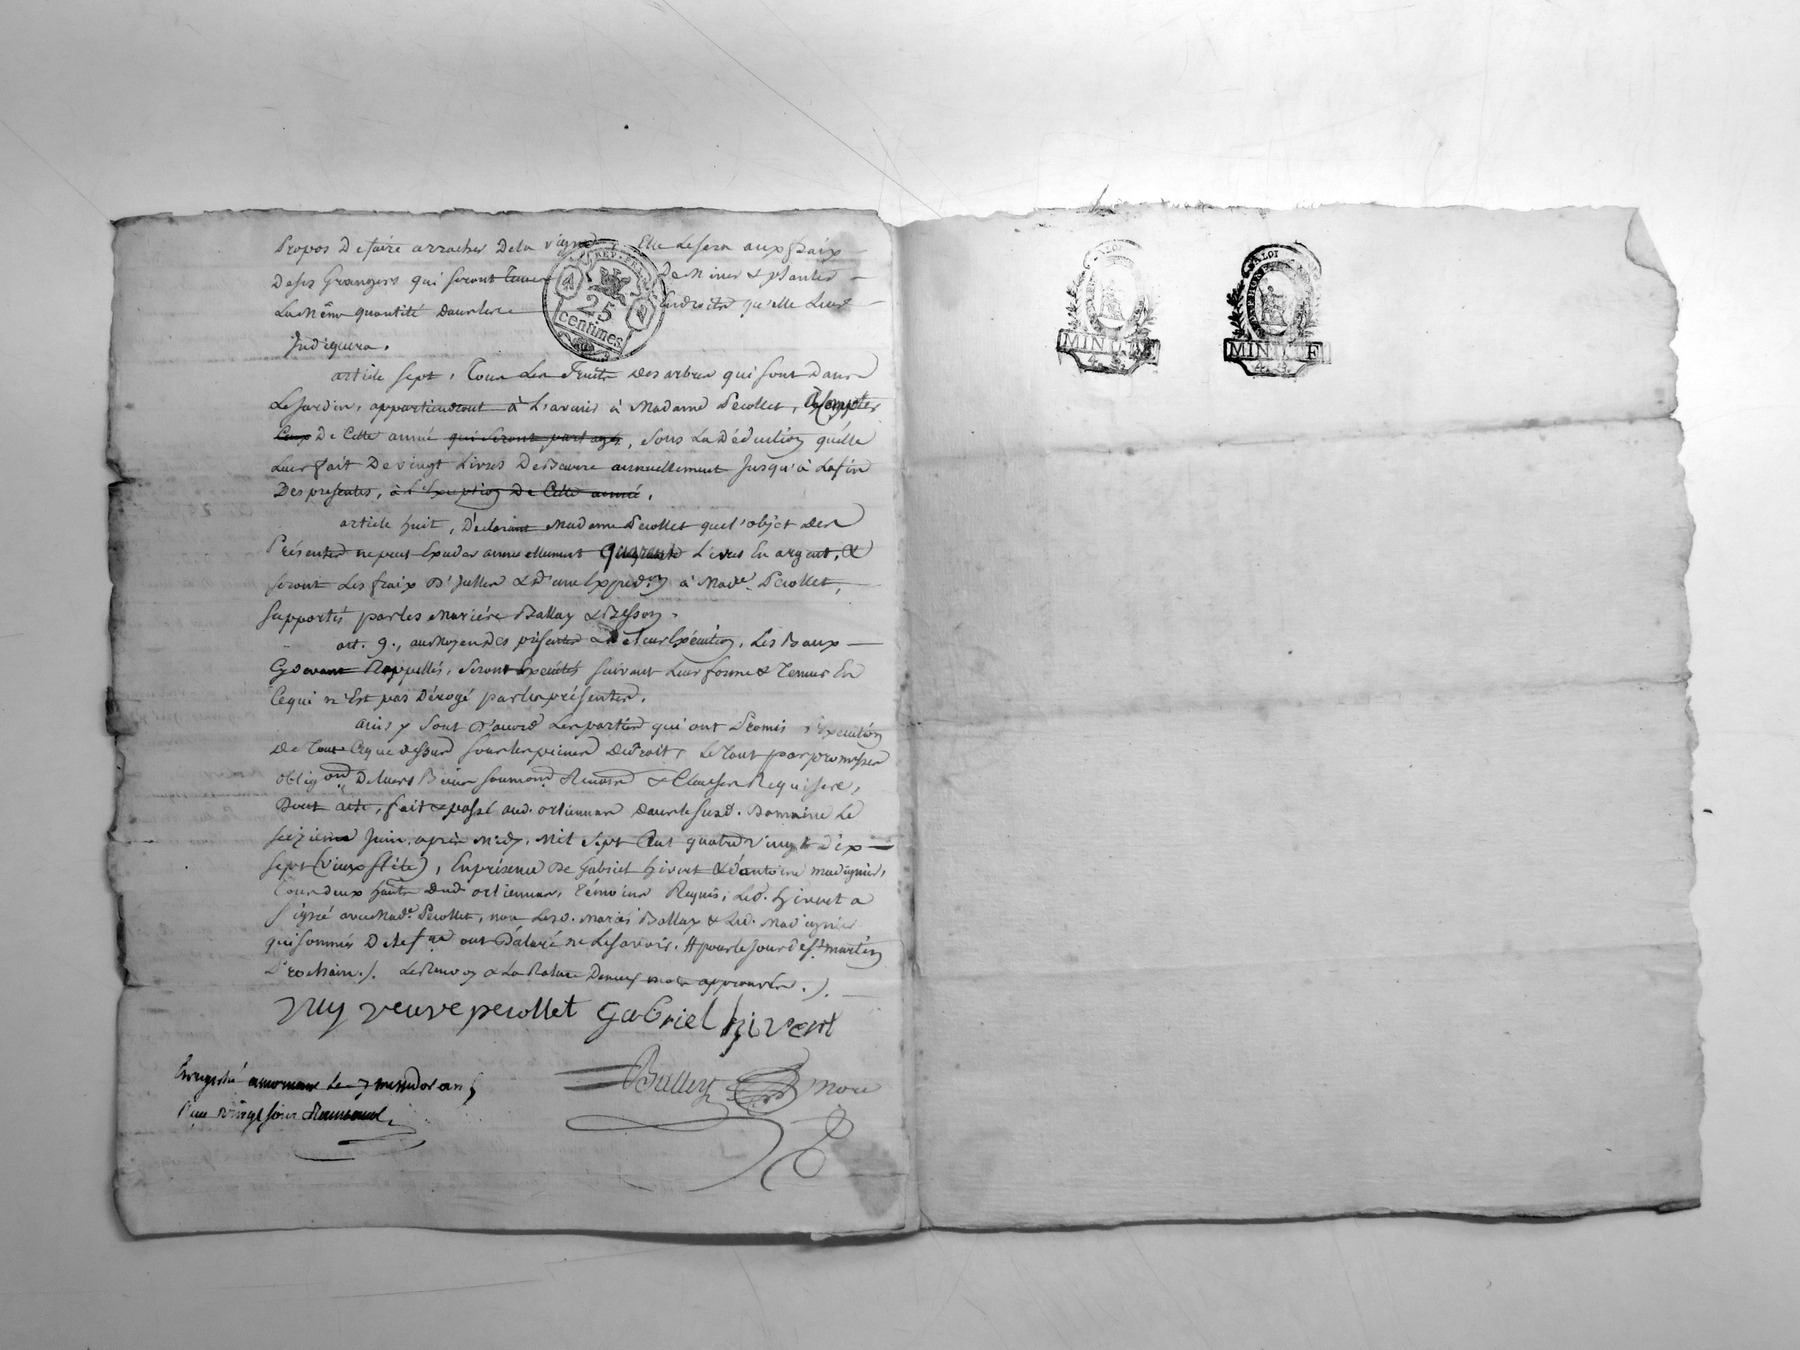 Propos De faire arracher De la vigne, Elle Le fera aux fraix
De ses Grangers qui seront Tenus De Miner & planter
La Même quantité Dans les Endroits qu'elle Leur
Indiquera.
article sept, Tous Les Fruits Des arbres qui sont Dans
Le Jardin, appartiendront à L'avenir à Madame Perollet, à Compter
De Cette année qui seront partagés, sous La Déduction qu'elle
Leur fait De vingt Livres De Beurre annuellement Jusqu'à La fin
Des presentes, à L'Exception De Cette année.
article huit, Déclarant Madame Perollet que l'objet Des
Présentes ne peut Exceder annuellement quarante Livres En argent, &
seront Les fraix D' & d'une Expedon à Made Perollet,
supportés par les Mariés Ballay & Besson.
art. 9., au Moyen Des présentes & De leur Exécution, Les Baux
Cy devant Rappellés, seront Exécutés suivant Leur forme & Teneur En
Ce qui n'Est pas Dérogé par les présentes.
ainsy sont D'accord Les parties qui ont Promis L'Exécution
De Tout Ce que dessus sous les peines De Droit, Le Tout par promesses
obligon De Leurs Biens soumions Renonons & Clauses Requises,
Dont acte, fait & passé aud. ortiennas dans le susd. Domaine Le
seizieme Juin, après Midy, Mil Sept Cent quatre vingt Dix
sept (vieux stile), En présence De Gabriel hivert & d'antoine madignier,
Tous deux hants dud. ortiennas, Témoins Requis, Led. hivert a
signé avec Made Perollet, non Lesd. Mariés Ballay & Led. Madignier
qui sommés De le fre ont Déclaré ne Le savoir. # pour le Jour de st martin
Prochain./. Le Renvoy & La Rature De neuf mots approuvés./.
Ruy veuve perollet Gabriel hivert
Balley nore
Enregistré a le 7 messidor an 5
Reçu vingt sous
REP. FRA.
25
centimes
LA LOI
MINUTE
LA LOI
MINUTE